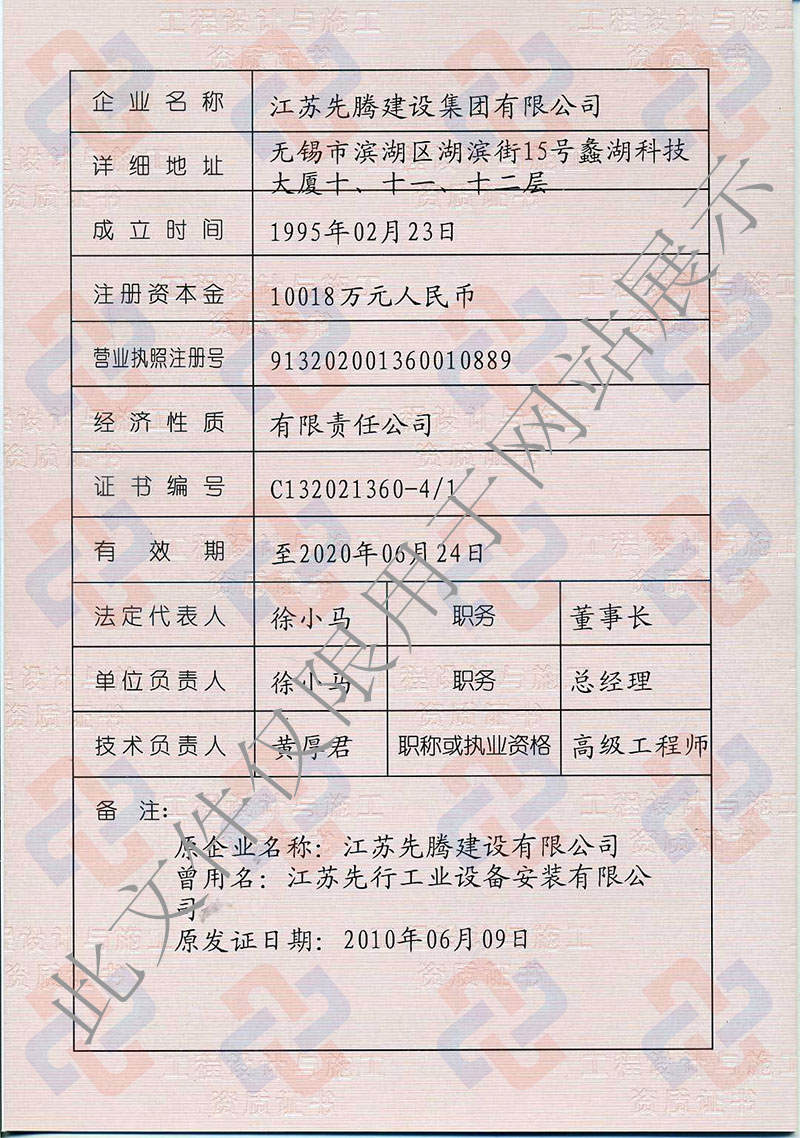 企业名称 江苏先腾建设集团有限公司
详细地址 无锡市滨湖区湖滨街15号蠡湖科技
大厦十、十一、十二层
成立时间 1995年02月23日
注册资本金 10018万元人民币
营业执照注册号 913202001360010889
经济性质 有限责任公司
证书编号 C132021360-4/1
有效期 至2020年06月24日
法定代表人 徐小马 职务 董事长
单位负责人 徐小马 职务 总经理
技术负责人 黄厚君 职称或执业资格 高级工程师
备注:
原企业名称：江苏先腾建设有限公司
曾用名：江苏先行工业设备安装有限公
司
原发证日期：2010年06月09日
此文件仅限用于网站展示
工程设计与施工
资质证书